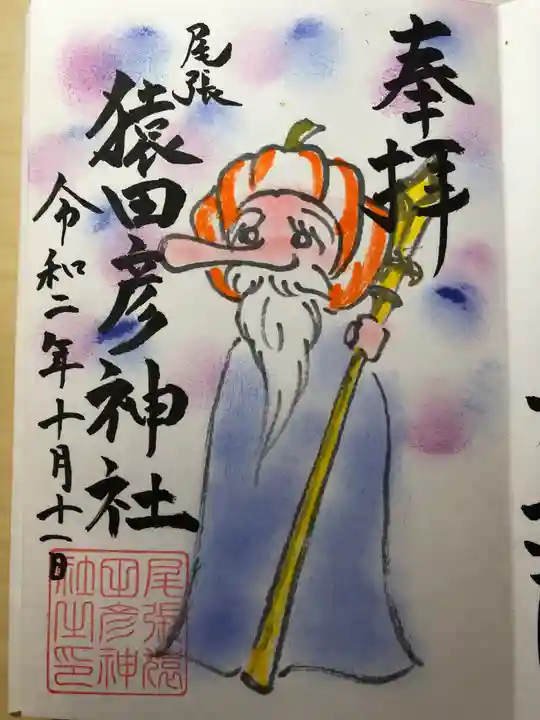 奉拝
尾張
猿田彦神社
令和二年十月十一日
尾張猿
田彦神
社之印